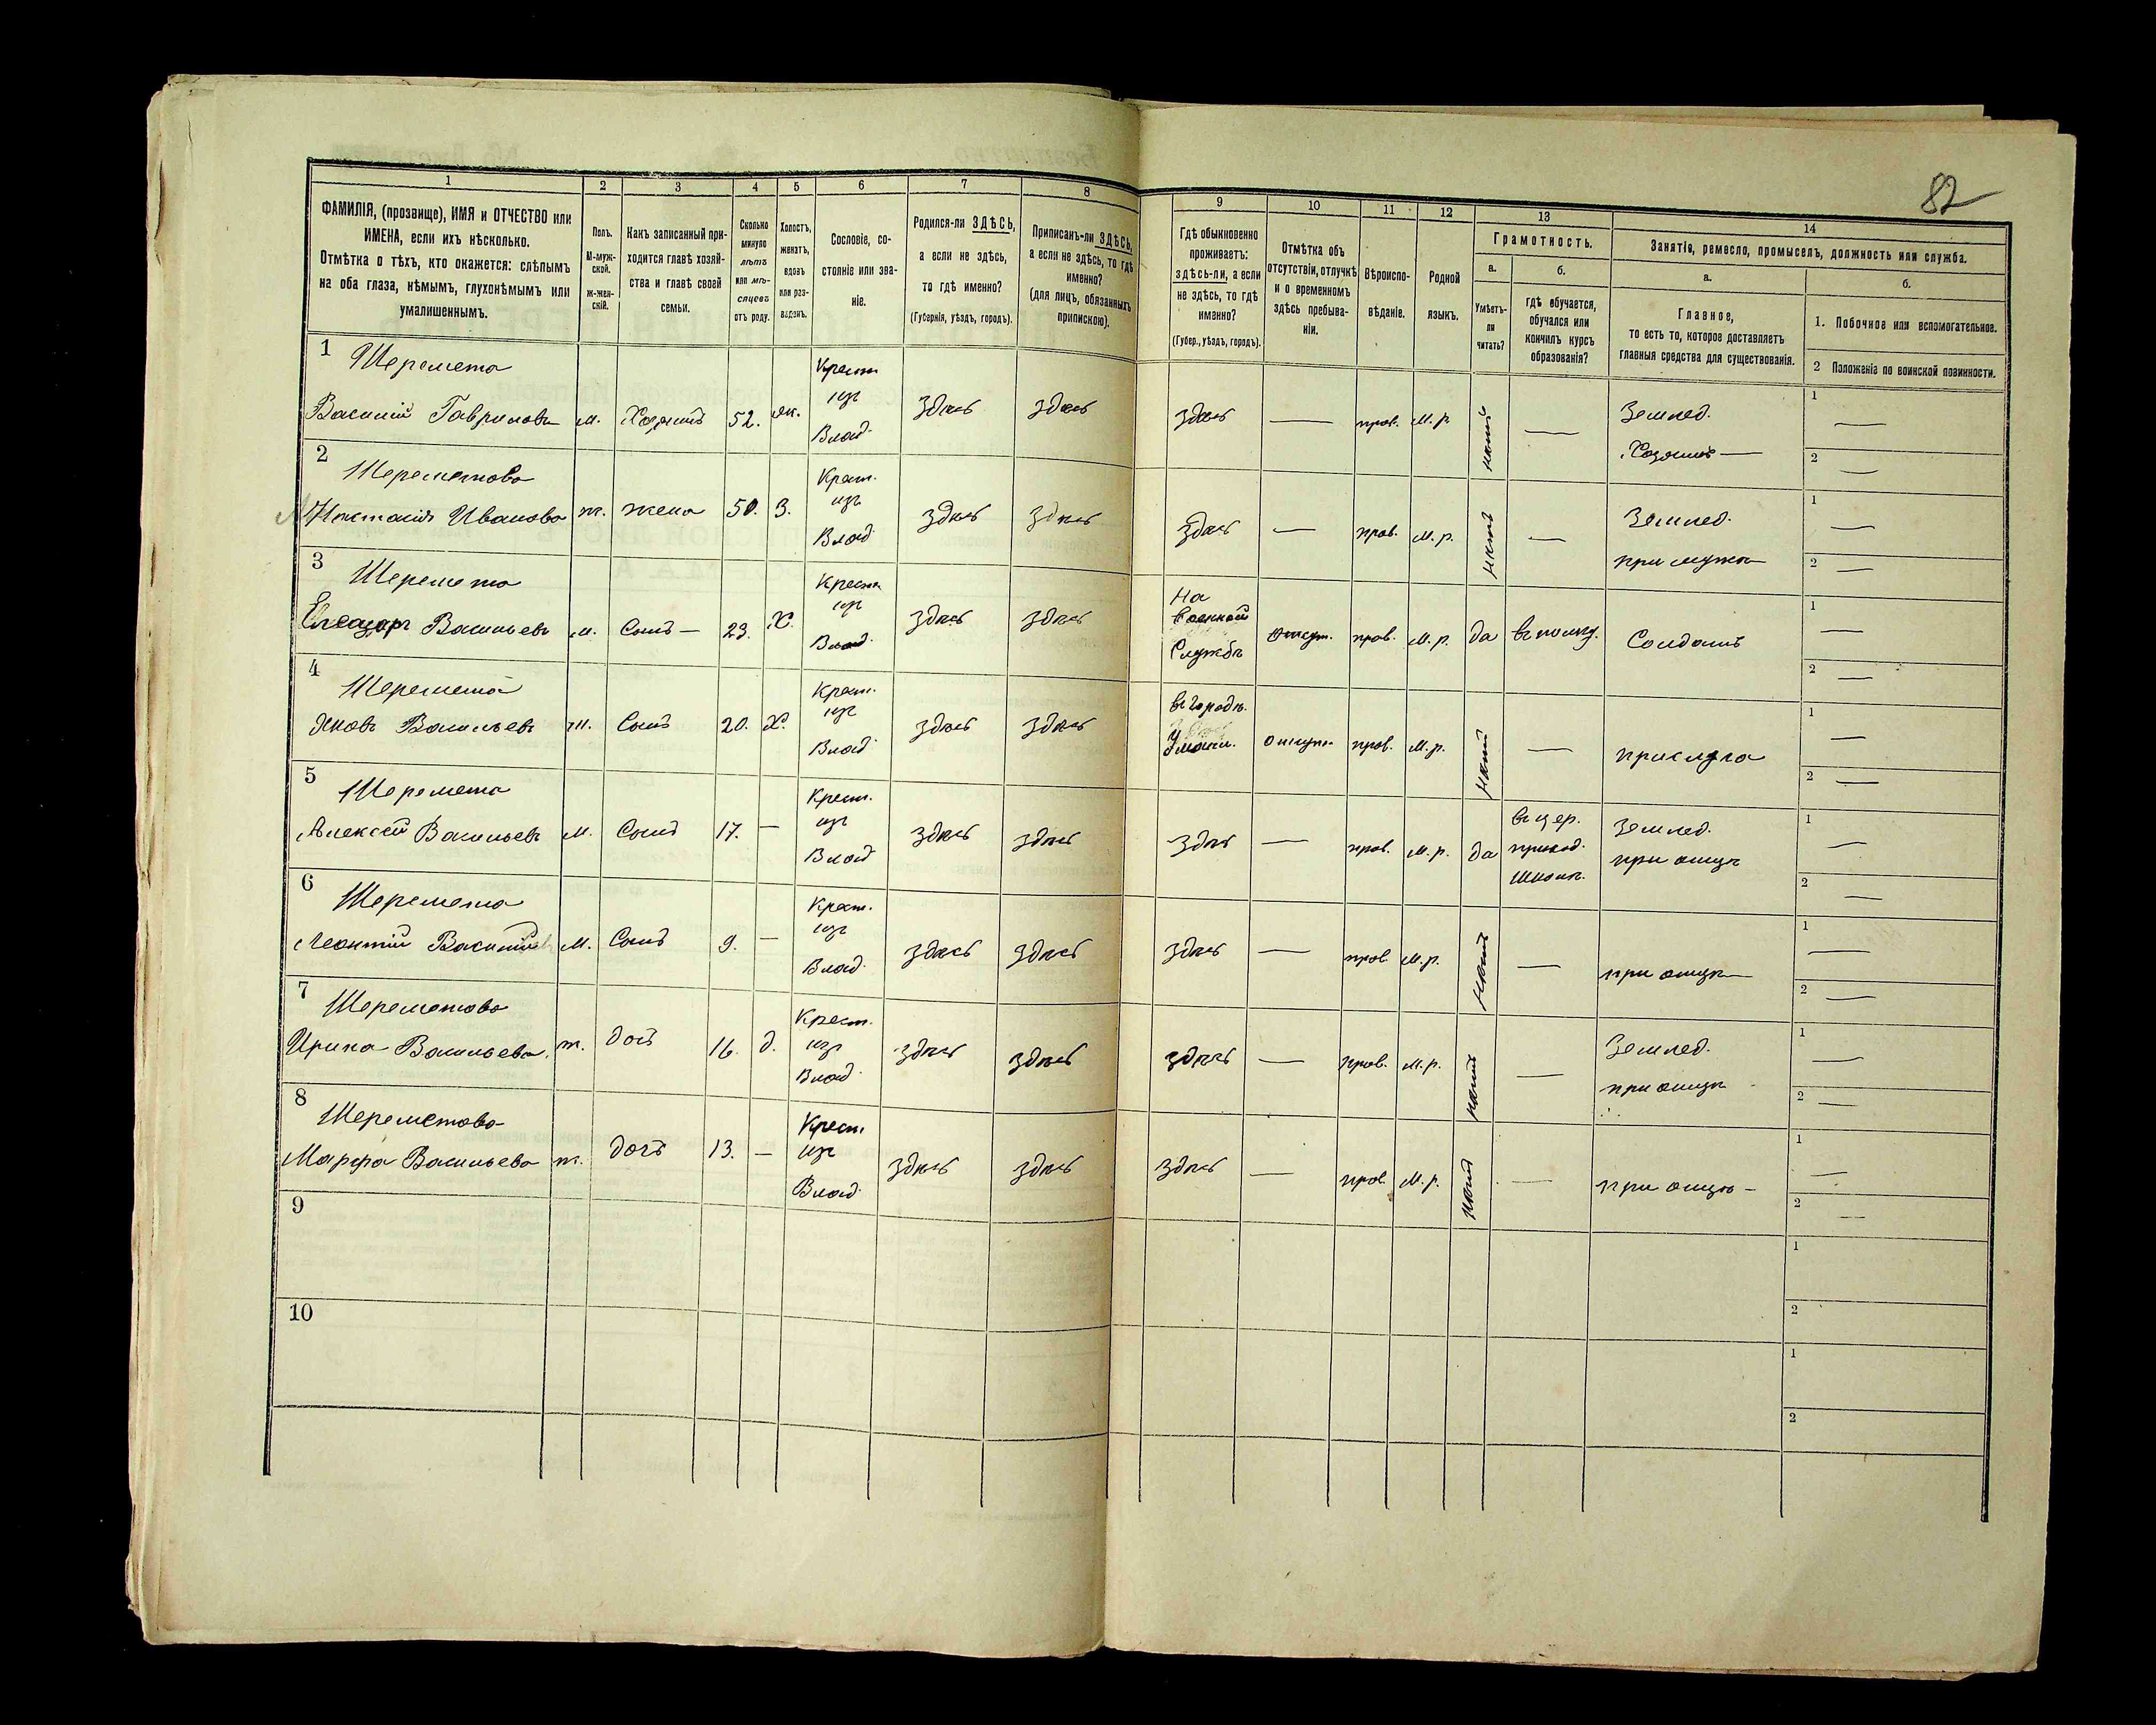 82
1 2 3 4 5 6 7 8 9 10 11 12 13 14
ФАМИЛІЯ, (прозвище), ИМЯ и ОТЧЕСТВО или
ИМЕНА, если ихъ нѣсколько.
Отмѣтка о тѣхъ, кто окажется: слѣпымъ
на оба глаза, нѣмымъ, глухонѣмымъ или
умалишеннымъ.
Полъ.
М-муж-
ской.
ж-жен-
скій.
Какъ записанный при-
ходится главѣ хозяй-
ства и главѣ своей
семьи.
Сколько
минуло
лѣтъ
или мѣ-
сяцевъ
отъ роду.
Холостъ,
женатъ,
вдовъ
или раз-
веденъ.
Сословіе, со-
стояніе или зва-
ніе.
Родился-ли ЗДѢСЬ,
а если не здѣсь,
то гдѣ именно?
(Губернія, уѣздъ, городъ).
Приписанъ-ли ЗДѢСЬ,
а если не здѣсь, то гдѣ
именно?
(для лицъ, обязанныхъ
припискою).
Гдѣ обыкновенно
проживаетъ:
здѣсь-ли, а если
не здѣсь, то гдѣ
именно?
(Губер., уѣздъ, городъ).
Отмѣтка объ
отсутствіи, отлучкѣ
и о временномъ
здѣсь пребыва-
ніи.
Вѣроиспо-
вѣданіе.
Родной
языкъ.
Грамотность.
а.
Умѣетъ-
ли
читать?
б.
гдѣ обучается,
обучался или
кончилъ курсъ
образованія?
Занятія, ремесло, промыселъ, должность или служба.
а.
Главное,
то есть то, которое доставляетъ
главныя средства для существованія.
б.
1. Побочное или вспомогательное.
2 Положеніе по воинской повинности.
1 Шеремета
Василій Гавриловъ м. Хозяинъ 52. жн. Крест. изъ Влад. здѣсь здѣсь здѣсь — прав. м.р. нѣтъ — Землед. Хозяинъ — 1 — 2 —
2 Шереметова
Анастасія Иванова ж. жена 50. З. Крест. изъ Влад. здѣсь здѣсь здѣсь — прав. м.р. нѣтъ — Землед. при мужѣ 1 — 2 —
3 Шеремета
Елеазаръ Васильевъ м. Сынъ — 23. Х. Крест. изъ Влад. здѣсь здѣсь На военной Службѣ отсут. прав. м.р. да въ полку. Солдатъ 1 — 2 —
4 Шеремета
Яковъ Васильевъ м. Сынъ 20. Х. Крест. изъ Влад. здѣсь здѣсь въ городѣ Умани. отсут. прав. м.р. нѣтъ — прислуга 1 — 2 —
5 Шеремета
Алексѣй Васильевъ м. Сынъ 17. — Крест. изъ Влад. здѣсь здѣсь здѣсь — прав. м.р. да въ цер. приход. школѣ. Землед. при отцѣ 1 — 2 —
6 Шеремета
Леонтій м. Сынъ 9. — Крест. изъ Влад. здѣсь здѣсь здѣсь — прав. м.р. нѣтъ — при отцѣ 1 — 2 —
7 Шереметова
Ирина Васильева. ж. дочь 16. д. Крест. изъ Влад. здѣсь здѣсь здѣсь — прав. м.р. нѣтъ — Землед. при отцѣ 1 — 2 —
8 Шереметова
Марфа Васильева ж. дочь 13. — Крест. изъ Влад. здѣсь здѣсь здѣсь — прав. м.р. нѣтъ — при отцѣ — 1 — 2 —
9 1 2
10 1 2